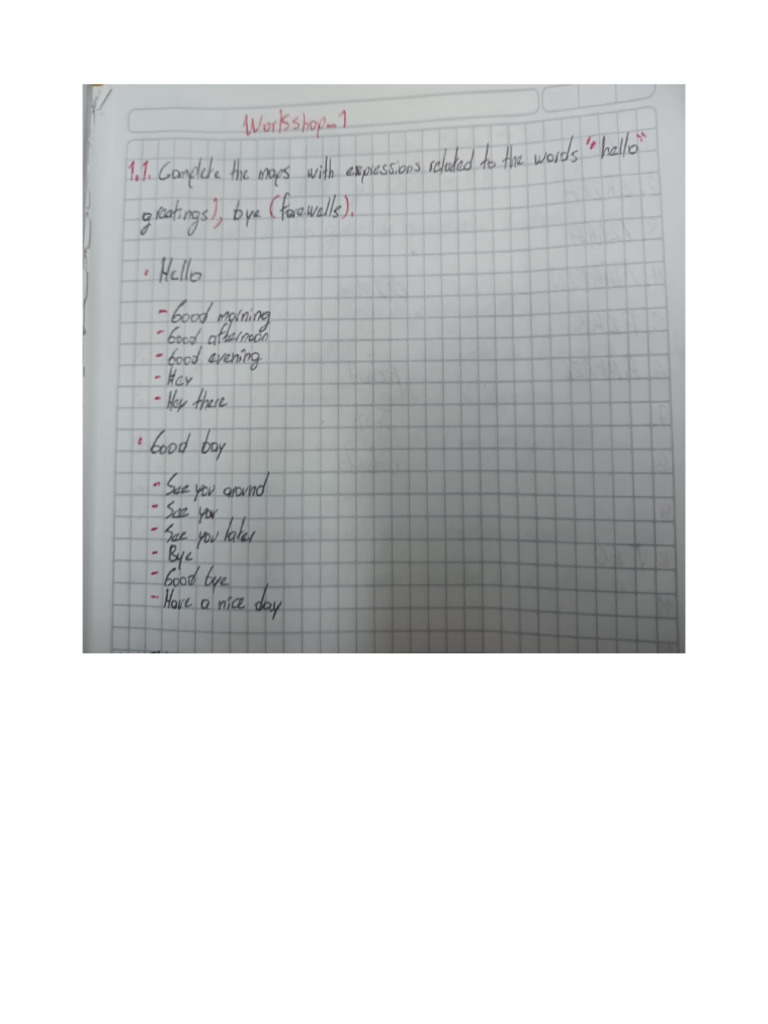 Worksshop_1
1.1. Complete the maps with expressions related to the words "hello"
greetings), bye (farewells).
• Hello
- Good morning
- Good afternoon
- Good evening.
- Hey
- Hey there
• Good bay
- See you around
- See you
- See you later
- Bye
- Good bye
- Have a nice day